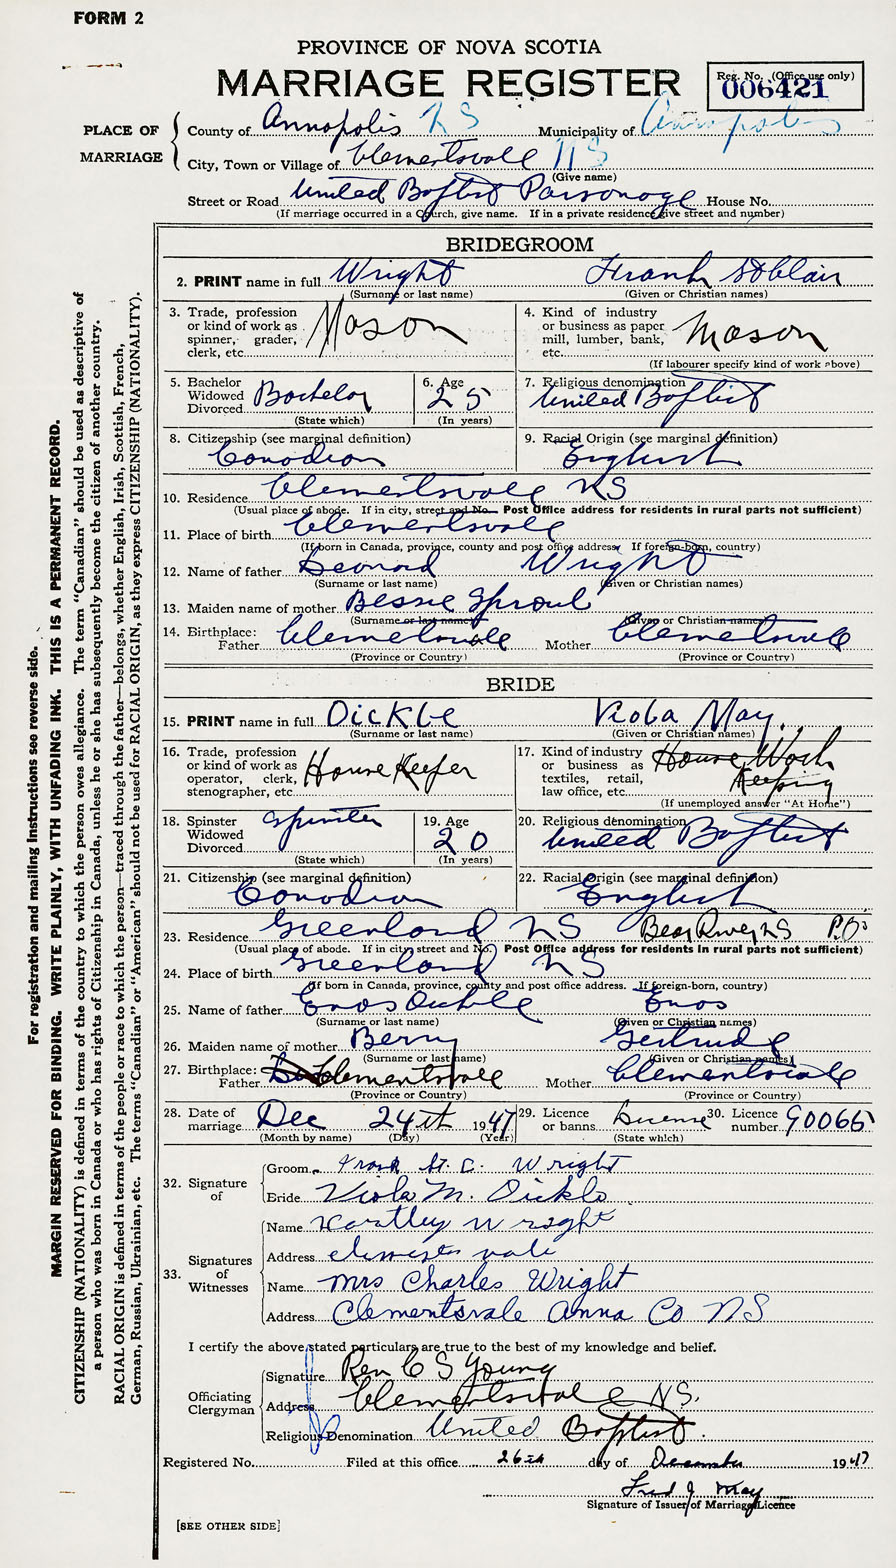 FORM 2
PROVINCE OF NOVA SCOTIA
MARRIAGE REGISTER
Reg. No. (Office use only)
006421
PLACE OF MARRIAGE
County of Annapolis NS Municipality of Annapolis
City, Town or Village of Clementsvale NS
(Give name)
Street or Road United Baptist Parsonage House No.
(If marriage occurred in a Church, give name. If in a private residence give street and number)
BRIDEGROOM
2. PRINT name in full Wright Frank St Clair
(Surname or last name) (Given or Christian names)
3. Trade, profession or kind of work as spinner, grader, clerk, etc. Mason
4. Kind of industry or business as paper mill, lumber, bank, etc. Mason
(If labourer specify kind of work above)
5. Bachelor Widowed Divorced Bachelor
(State which)
6. Age 25
(In years)
7. Religious denomination United Baptist
8. Citizenship (see marginal definition) Canadian
9. Racial Origin (see marginal definition) English
10. Residence Clementsvale NS
(Usual place of abode. If in city, street and No. Post Office address for residents in rural parts not sufficient)
11. Place of birth Clementsvale
(If born in Canada, province, county and post office address. If foreign-born, country)
12. Name of father Leonard Wright
(Surname or last name) (Given or Christian names)
13. Maiden name of mother Bessie Sproul
(Surname or last name) (Given or Christian names)
14. Birthplace: Father Clemetsvale Mother Clemetsvale
(Province or Country) (Province or Country)
BRIDE
15. PRINT name in full Dickie Viola May
(Surname or last name) (Given or Christian names)
16. Trade, profession or kind of work as operator, clerk, stenographer, etc. House Keeper
17. Kind of industry or business as textiles, retail, law office, etc. House Work Keeping
(If unemployed answer "At Home")
18. Spinster Widowed Divorced Spinster
(State which)
19. Age 20
(In years)
20. Religious denomination United Baptist
21. Citizenship (see marginal definition) Canadian
22. Racial Origin (see marginal definition) English
23. Residence Greenland NS Bear River NS P.O.
(Usual place of abode. If in city street and No. Post Office address for residents in rural parts not sufficient)
24. Place of birth Greenland NS
(If born in Canada, province, county and post office address. If foreign-born, country)
25. Name of father Enos Dickie Enos
(Surname or last name) (Given or Christian names)
26. Maiden name of mother Berry Gertrude
(Surname or last name) (Given or Christian names)
27. Birthplace: Father Clementsvale Mother Clementsvale
(Province or Country) (Province or Country)
28. Date of marriage Dec 24th 1947
(Month by name) (Day) (Year)
29. Licence or banns License
(State which)
30. Licence number 90065
32. Signature of
Groom Frank St. C. Wright
Bride Viola M. Dickie
33. Signatures of Witnesses
Name Hartley Wright
Address Clementsvale
Name Mrs Charles Wright
Address Clementsvale Anna Co NS
I certify the above stated particulars are true to the best of my knowledge and belief.
Officiating Clergyman
Signature Rev C S Young
Address Clementsvale NS.
Religious Denomination United Baptist.
Registered No. Filed at this office 26th day of December 1947
Fred J May
Signature of Issuer of Marriage Licence
[SEE OTHER SIDE]
For registration and mailing instructions see reverse side.
MARGIN RESERVED FOR BINDING. WRITE PLAINLY, WITH UNFADING INK. THIS IS A PERMANENT RECORD.
CITIZENSHIP (NATIONALITY) is defined in terms of the country to which the person owes allegiance. The term "Canadian" should be used as descriptive of
a person who was born in Canada or who has rights of Citizenship in Canada, unless he or she has subsequently become the citizen of another country.
RACIAL ORIGIN is defined in terms of the people or race to which the person—traced through the father—belongs, whether English, Irish, Scottish, French,
German, Russian, Ukrainian, etc. The terms "Canadian" or "American" should not be used for RACIAL ORIGIN, as they express CITIZENSHIP (NATIONALITY).